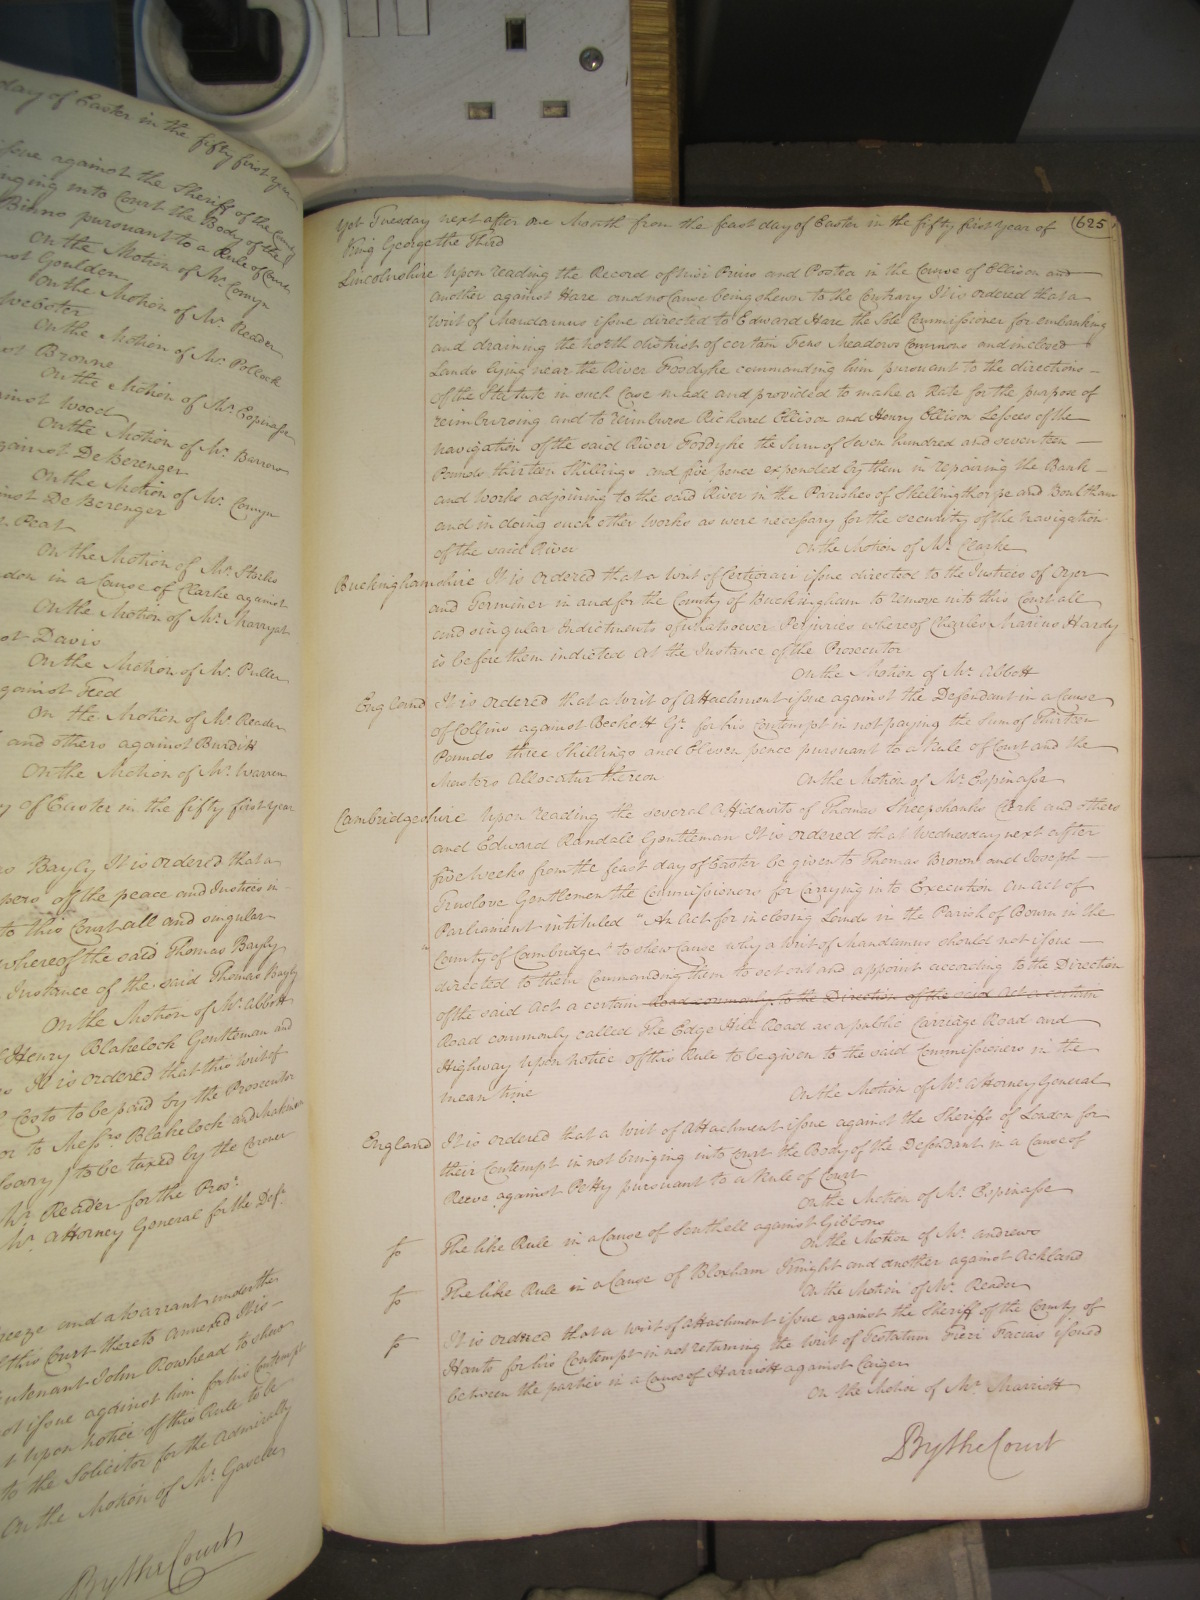 day of Easter in the fifty first year
issue against the Sheriff of the County
bringing into Court the Body of the
Binno pursuant to a Rule of Court
On the Motion of Mr. Comyn
Goulden
On the Motion of Mr. Reader
Webster
On the Motion of Mr. Pollock
Browne
On the Motion of Mr. Espinasse
against Wood
On the Motion of Mr. Barrow
against De Berenger
On the Motion of Mr. Comyn
against De Berenger
Peat
On the Motion of Mr. Storks
in a Cause of Clarke against
On the Motion of Mr. Marryat
Davis
On the Motion of Mr. Puller
against Feed
On the Motion of Mr. Reader
and others against Burditt
On the Motion of Mr. Warren
of Easter in the fifty first year
Bayly It is ordered that a
of the peace and Justices in
to this Court all and singular
whereof the said Thomas Bayly
Instance of the said Thomas Bayly
On the Motion of Mr. Abbott
Henry Blakelock Gentleman and
It is ordered that this writ of
Costs to be paid by the Prosecutor
or to Messrs Blakelock and Makinson
to be taxed by the Coroner
Mr. Reader for the Prosr.
Mr. Attorney General for the Deft.
and a Warrant under the
this Court thereto annexed It is
Lieutenant John Rowhead to shew
not issue against him for his Contempt
upon notice of this Rule to be
to the Solicitor for the Admiralty
On the Motion of Mr. Gaselee
By the Court
Yet Tuesday next after one Month from the feast day of Easter in the fifty first year of 625
King George the Third
Lincolnshire Upon reading the Record of Nisi Prius and Postea in the Cause of Ellison and
another against Hare and no Cause being shewn to the Contrary It is ordered that a
Writ of Mandamus issue directed to Edward Hare the Sole Commissioner for embanking
and draining the North district of certain Fens Meadows Commons and inclosed
Lands lying near the River Fossdyke commanding him pursuant to the directions
of the Statute in such Case made and provided to make a Rate for the purpose of
reimbursing and to reimburse Richard Ellison and Henry Ellison Lessees of the
navigation of the said River Fossdyke the Sum of Seven hundred and seventeen
Pounds thirteen Shillings and five pence expended by them in repairing the Bank
and Works adjoining to the said River in the Parishes of Skellingthorpe and Boultham
and in doing such other Works as were necessary for the security of the navigation
of the said River On the Motion of Mr. Clarke
Buckinghamshire It is ordered that a Writ of Certiorari issue directed to the Justices of Oyer
and Terminer in and for the County of Buckingham to remove into this Court all
and singular Indictments of whatsoever Perjuries whereof Charles Marius Hardy
is before them indicted At the Instance of the Prosecutor
On the Motion of Mr. Abbott
England It is ordered that a Writ of Attachment issue against the Defendant in a Cause
of Collins against Beckett Gt. for his Contempt in not paying the Sum of Thirteen
Pounds three Shillings and Eleven pence pursuant to a Rule of Court and the
Masters Allocatur thereon On the Motion of Mr. Espinasse
Cambridgeshire Upon reading the several Affidavits of Thomas Sheepshanks Clerk and others
and Edward Randale Gentleman It is ordered that Wednesday next after
five Weeks from the feast day of Easter be given to Thomas Brown and Joseph
Truslove Gentlemen the Commissioners for Carrying into Execution an Act of
Parliament intituled "An Act for inclosing Lands in the Parish of Bourn in the
County of Cambridge" to shew Cause why a Writ of Mandamus should not issue
directed to them Commanding them to set out and appoint according to the Direction
of the said Act a certain Road commonly to the Direction of the said Act a certain
Road commonly called The Edge Hill Road as a public Carriage Road and
Highway Upon notice of this Rule to be given to the said Commissioners in the
mean time On the Motion of Mr. Attorney General
England It is ordered that a Writ of Attachment issue against the Sheriffs of London for
their Contempt in not bringing into Court the Body of the Defendant in a Cause of
Reeve against Petty pursuant to a Rule of Court
On the Motion of Mr. Espinasse
The like Rule in a Cause of Senthell against Gibbons
On the Motion of Mr. Andrews
The like Rule in a Cause of Bloxham Knight and another against Ackland
On the Motion of Mr. Reader
It is ordered that a Writ of Attachment issue against the Sheriff of the County of
Hants for his Contempt in not returning the Writ of Testatum Fieri Facias issued
between the parties in a Cause of Harriott against Caiger
On the Motion of Mr. Marriott
By the Court